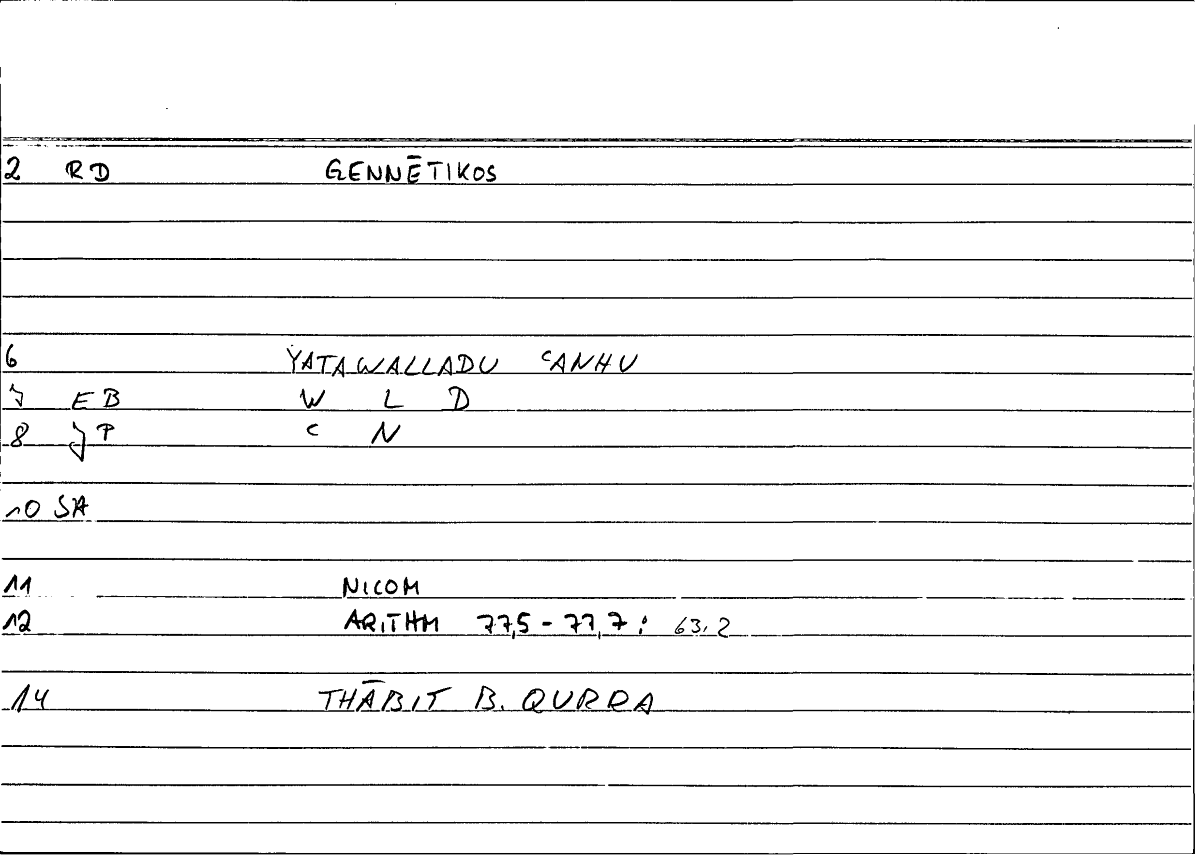 2 RD GENNĒTIKOS
6 YATAWALLADU ʿANHU
7 EB W L D
8 JP ʿ N
10 SA
11 NICOM
12 ARITHM 77,5 - 77,7 : 63,2
14 THĀBIT B. QURRA